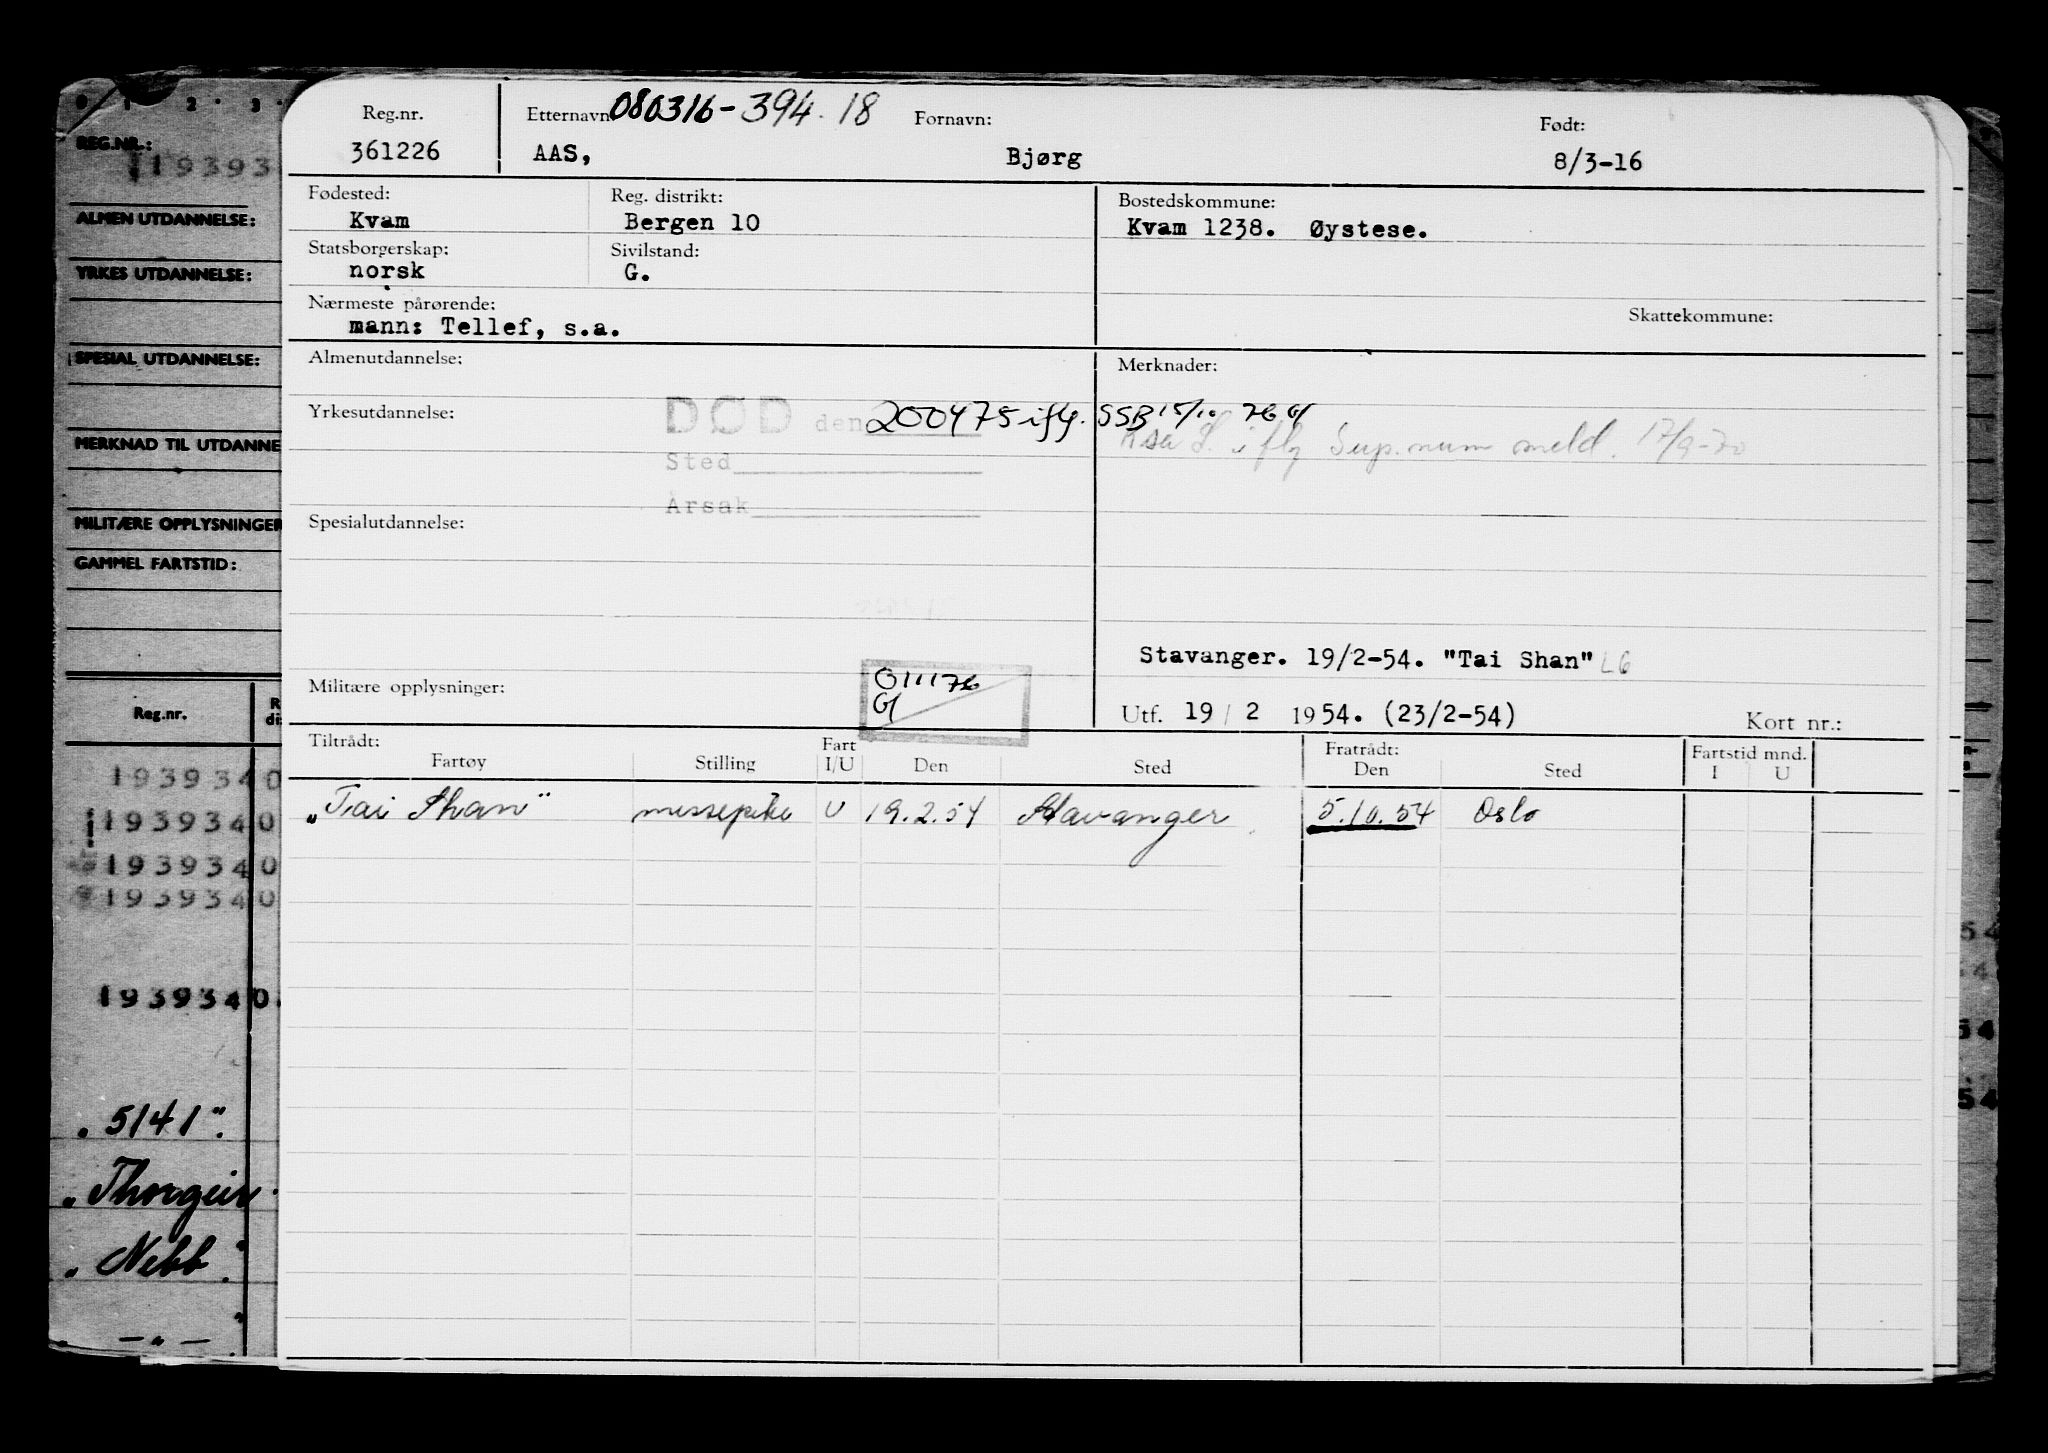 0 1 2 3
REG.NR.:
193934
ALMEN UTDANNELSE:
YRKES UTDANNELSE:
SPESIAL UTDANNELSE:
MERKNAD TIL UTDANNE
MILITÆRE OPPLYSNINGER
GAMMEL FARTSTID:
Reg.nr.
1939340
1939340
1939340
1939340
1939340
„5141".
„Thorgeir
„Nebb".
— " —
Reg.nr. Etternavn 080316-394.18 Fornavn: Født:
361226 AAS, Bjørg 8/3-16
Fødested: Reg. distrikt: Bostedskommune:
Kvam Bergen 10 Kvam 1238. Øystese.
Statsborgerskap: Sivilstand:
norsk G.
Nærmeste pårørende: Skattekommune:
mann: Tellef, s.a.
Almenutdannelse: Merknader:
Yrkesutdannelse: DØD den 200475 iflg. SSB 15/10 76 G
S. iflg Sup.num meld. 17/9-70
Sted
Årsak
Spesialutdannelse:
Stavanger. 19/2-54. "Tai Shan" LG
Militære opplysninger: 011176
G
Utf. 19 / 2 1954. (23/2-54) Kort nr.:
Tiltrådt: Fart Fratrådt: Fartstid mnd.
Fartøy Stilling I/U Den Sted Den Sted I U
„Tai Shan" messepike U 19.2.54 Stavanger 5.10.54 Oslo
54
54
54
54